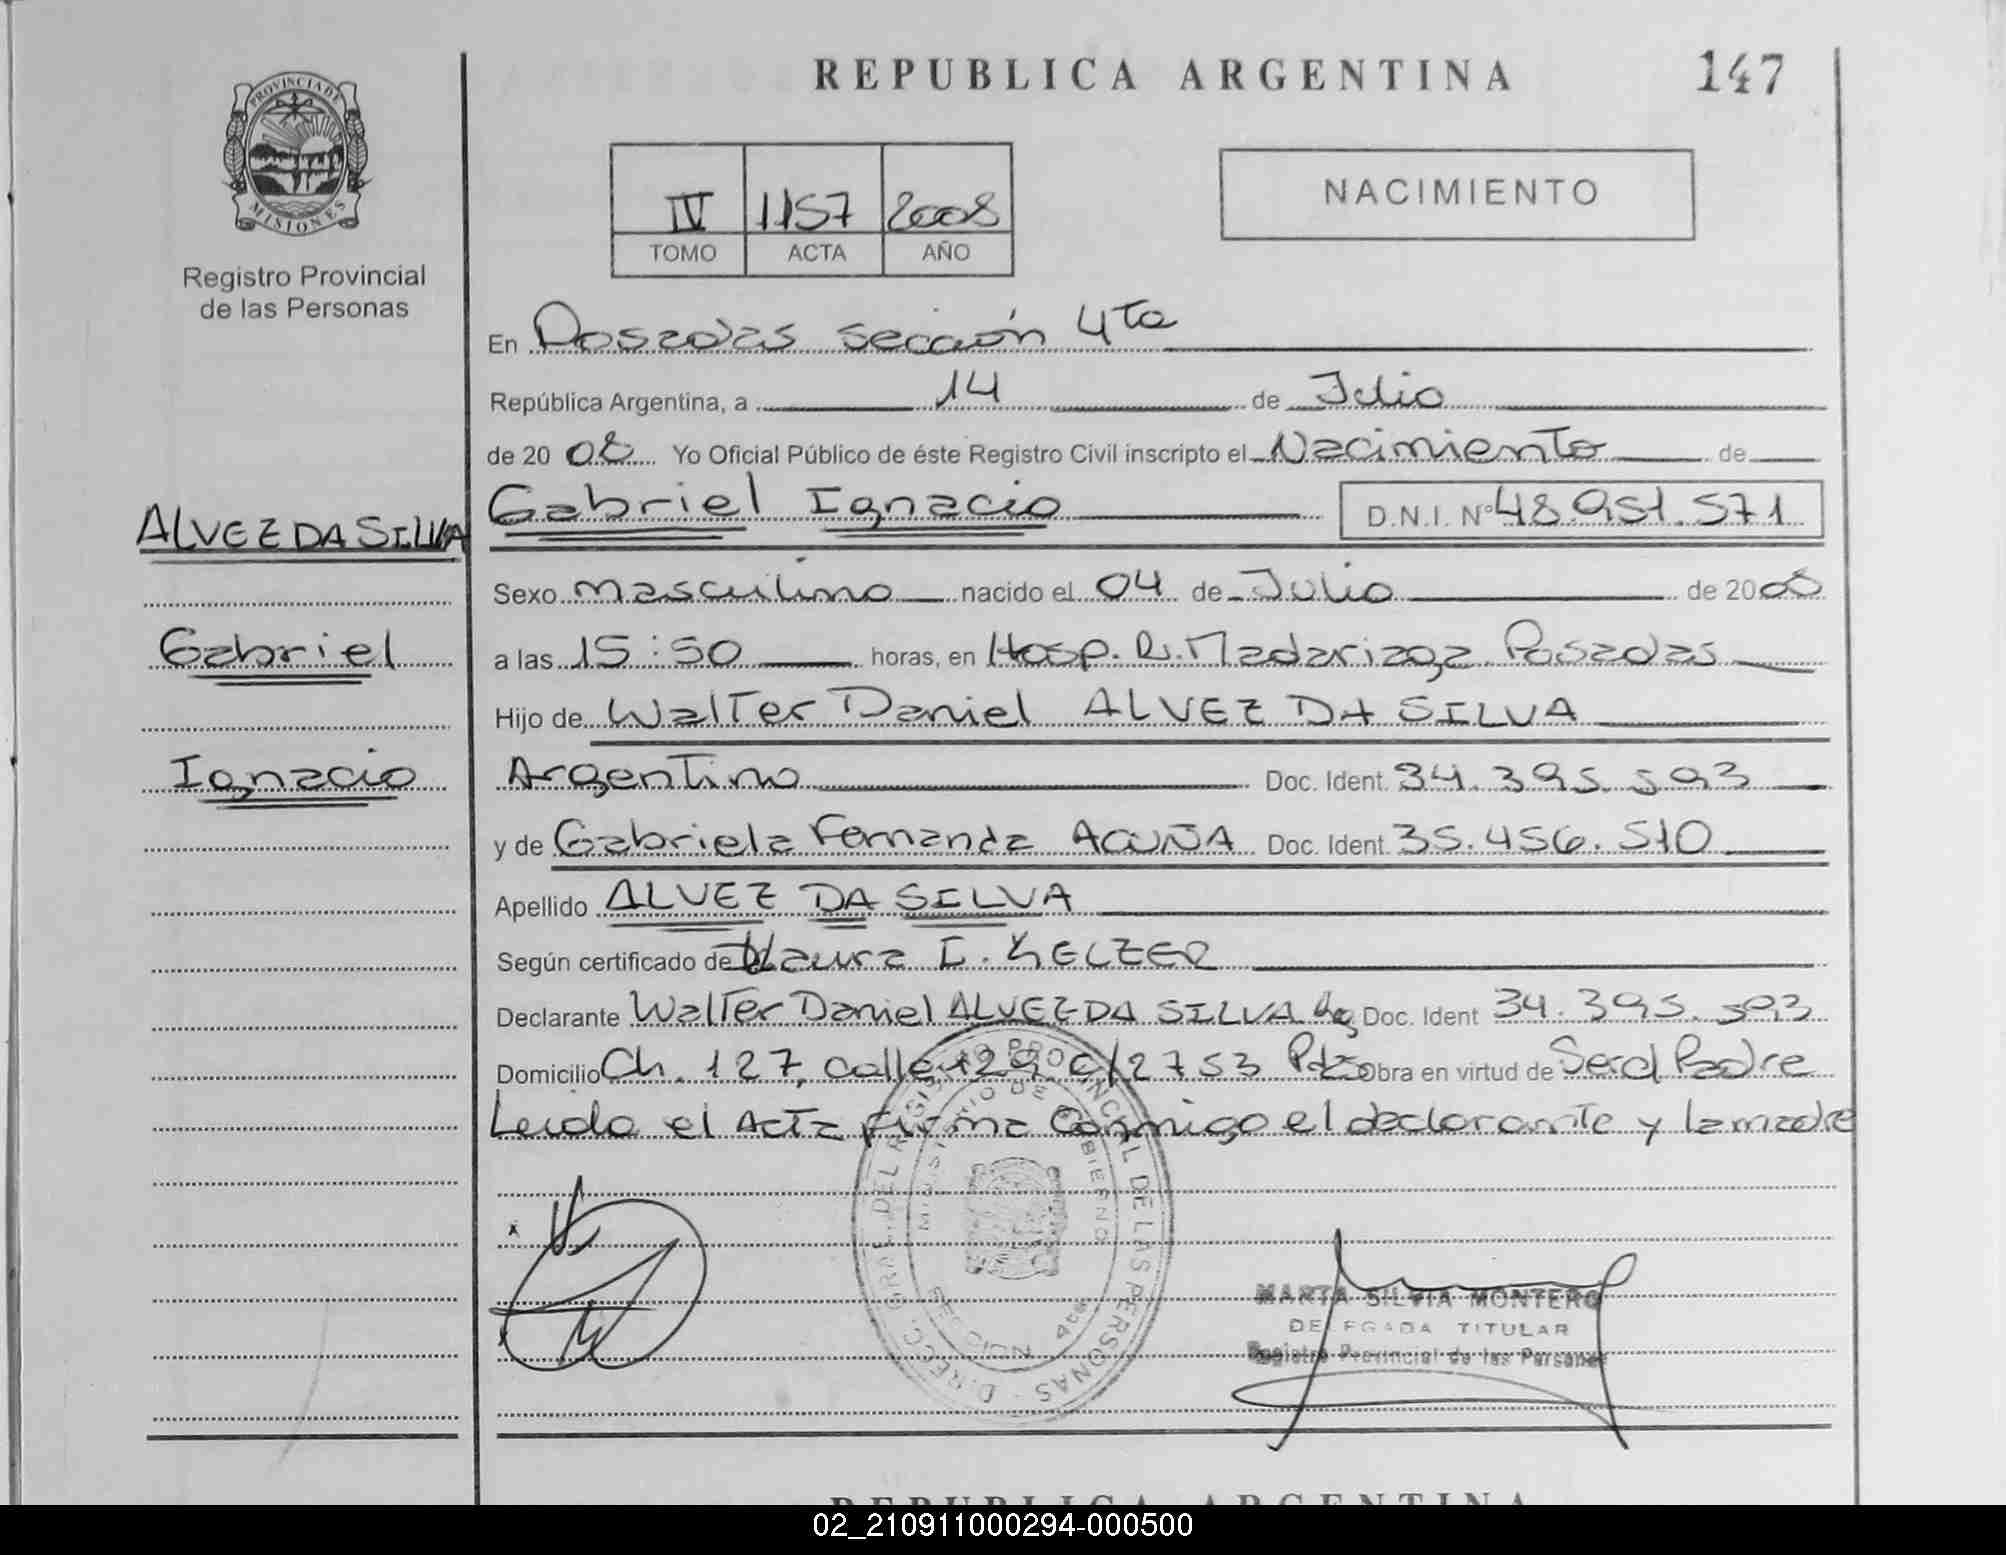 REPUBLICA ARGENTINA
147
PROVINCIA DE
MISIONES
Registro Provincial
de las Personas
IV 1157 2008
TOMO ACTA AÑO
NACIMIENTO
En Posadas sección 4ta
República Argentina, a 14 de Julio
de 20 08 Yo Oficial Público de éste Registro Civil inscripto el Nacimiento de
Gabriel Ignacio D.N.I. N° 48.951.571
ALVEZ DA SILVA
Gabriel
Ignacio
Sexo masculino nacido el 04 de Julio de 2008
a las 15:50 horas, en Hosp. R. Madariaga Posadas
Hijo de Walter Daniel ALVEZ DA SILVA
Argentino Doc. Ident. 34.395.593
y de Gabriela Fernanda ACUÑA Doc. Ident. 35.456.510
Apellido ALVEZ DA SILVA
Según certificado de Laura I. KELZER
Declarante Walter Daniel ALVEZ DA SILVA Doc. Ident 34.395.593
Domicilio Ch. 127, calle 129 c/2753 Pdas Obra en virtud de Ser el Padre
Leida el Acta firma conmigo el declarante y la madre
DIREC. GRAL. DEL REGISTRO PROVINCIAL DE LAS PERSONAS
MINISTERIO DE GOBIERNO
SECCION 4ta
MARTA SILVIA MONTERO
DELEGADA TITULAR
Registro Provincial de las Personas
REPUBLICA ARGENTINA
02_210911000294-000500